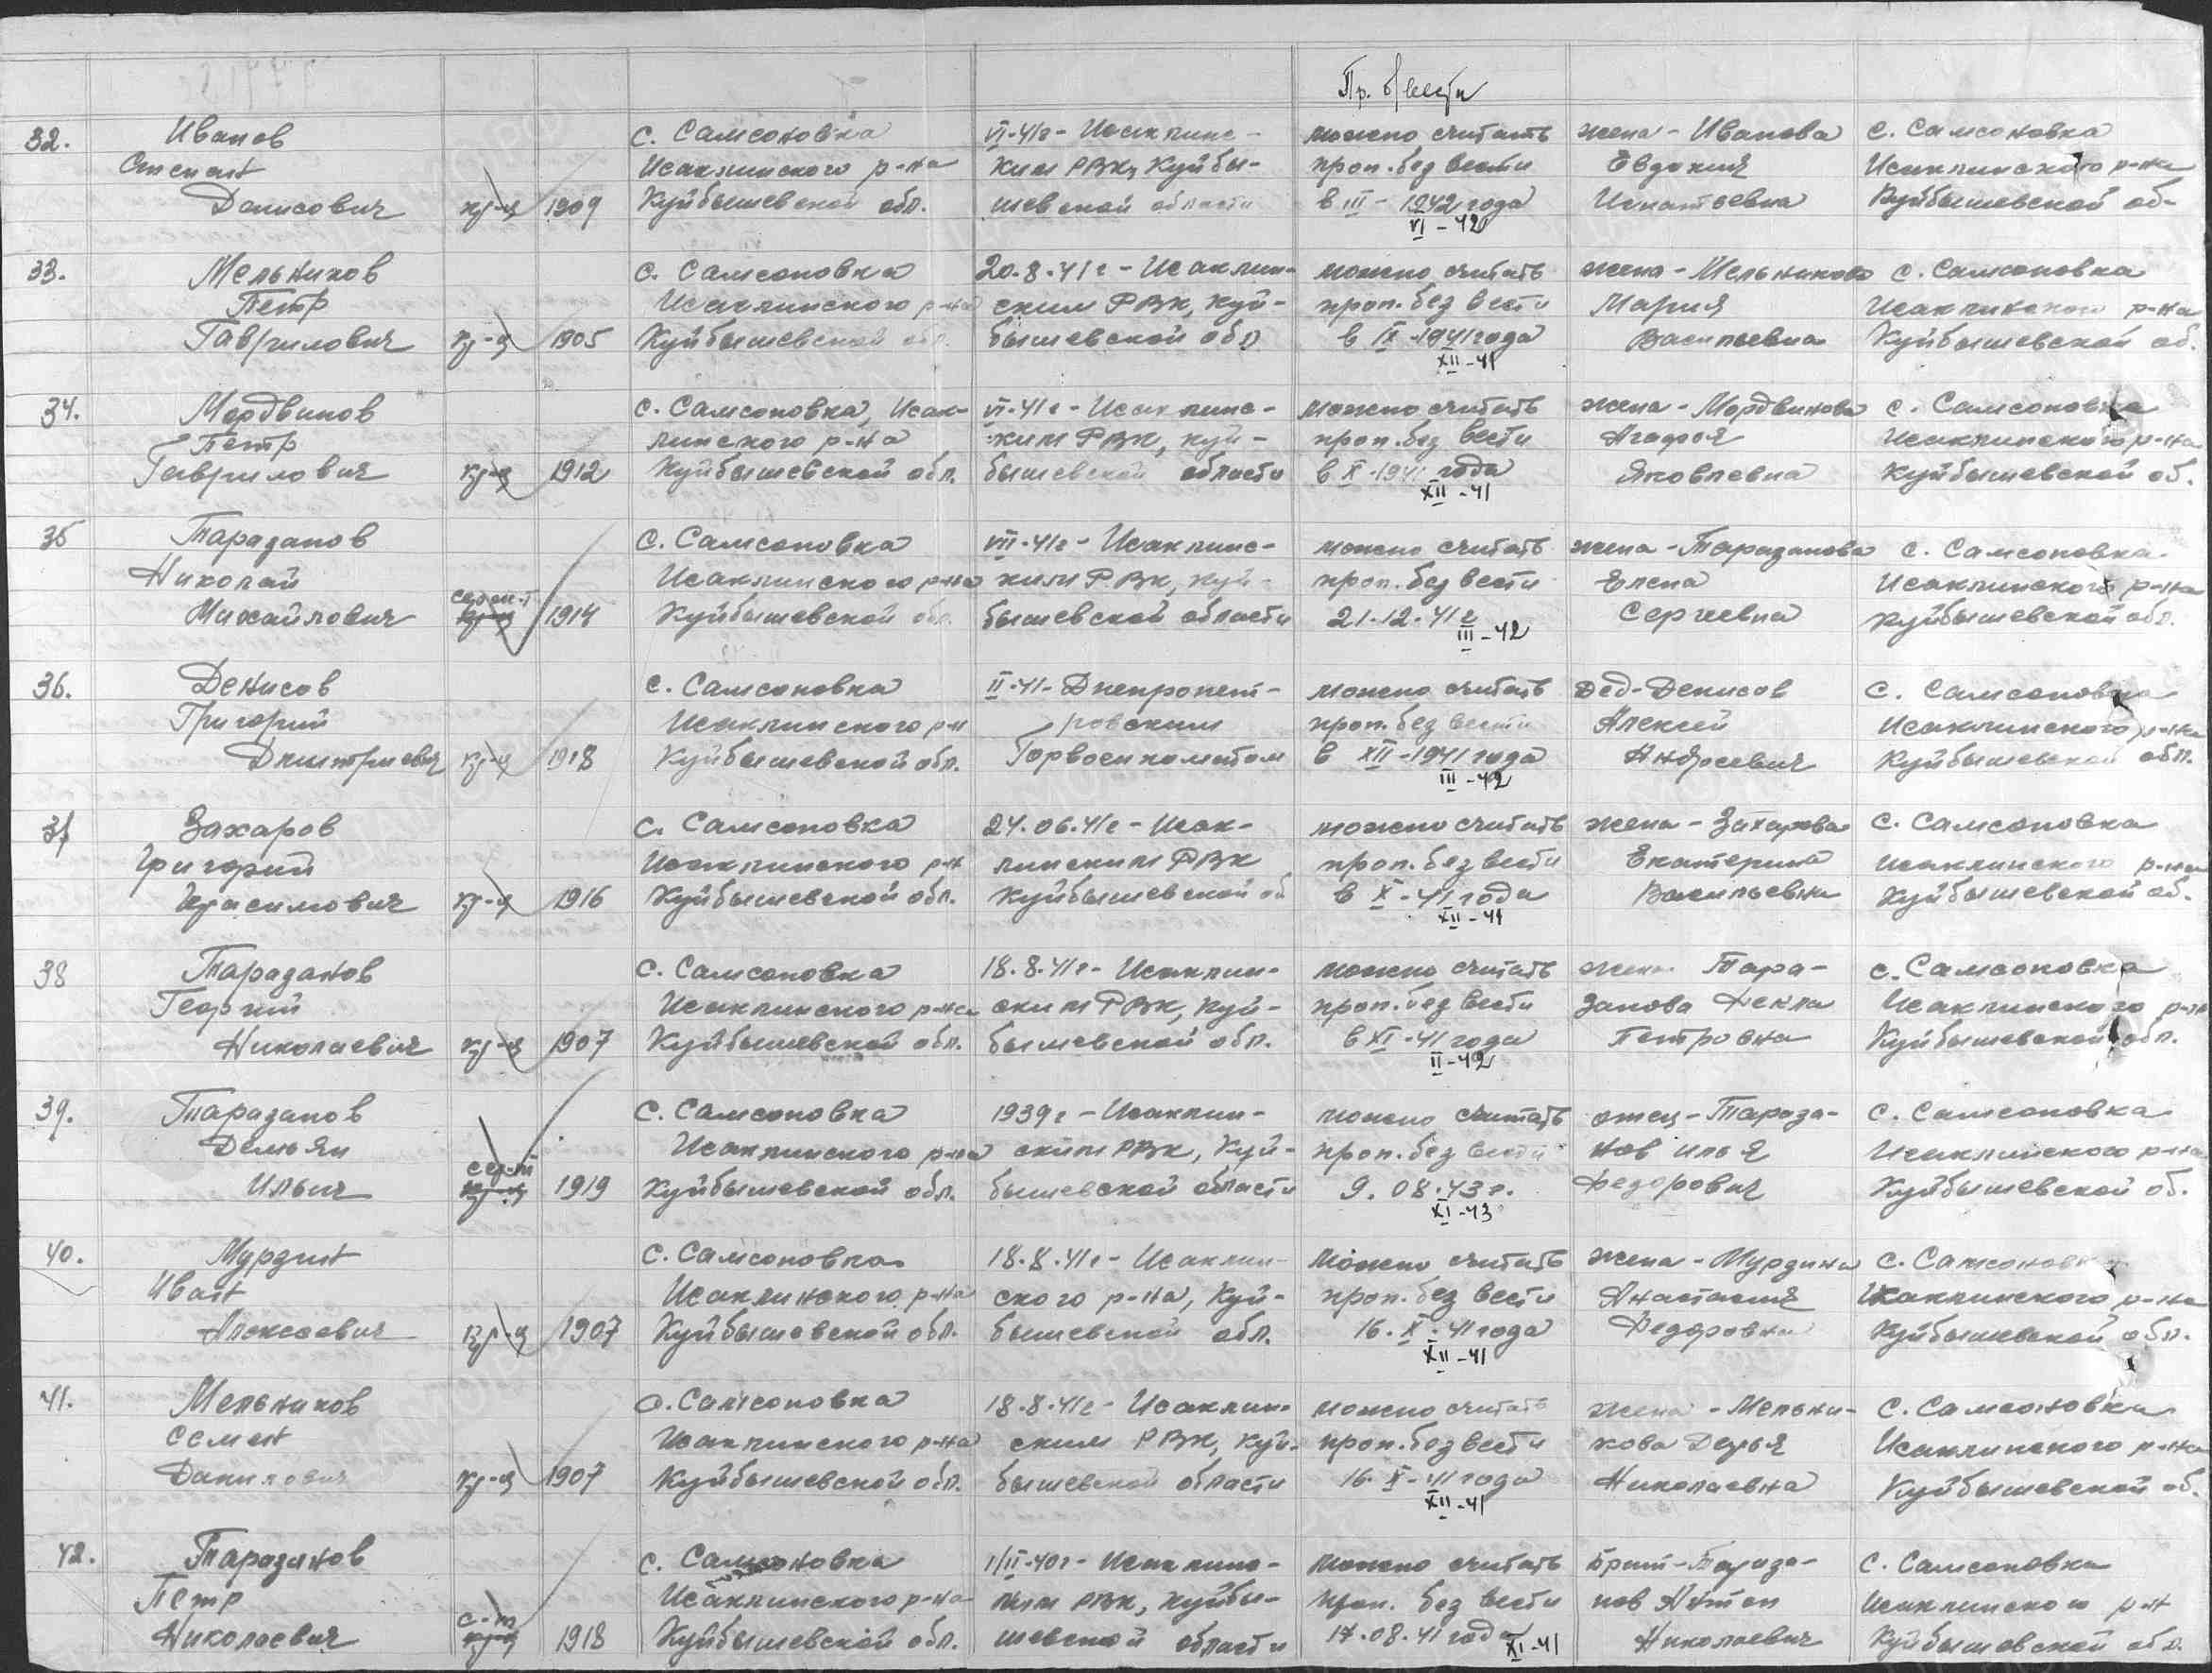 Пр. б/вести
32. Иванов
Степан
Денисович
кр-ц 1909
с. Самсоновка
Исаклинского р-на
Куйбышевской обл.
VI-41г - Исаклинс-
ким РВК, Куйбы-
шевской области
можно считать
проп. без вести
в III - 1942 года
VI - 42
жена - Иванова
Евдокия
Игнатьевна
с. Самсоновка
Исаклинского р-на
Куйбышевской об-
33. Мельников
Петр
Гаврилович
кр-ц 1905
с. Самсоновка
Исаклинского р-на
Куйбышевской обл.
20.8.41г - Исаклин-
ским РВК, Куй-
бышевской обл
можно считать
проп. без вести
в IX - 1941 года
XII - 41
жена - Мельникова
Мария
Васильевна
с. Самсоновка
Исаклинского р-на
Куйбышевской об.
34. Мордвинов
Петр
Гаврилович
кр-ц 1912
с. Самсоновка, Исак-
линского р-на
Куйбышевской обл.
VI-41г - Исаклинс-
ким РВК, Куй-
бышевской области
можно считать
проп. без вести
в X - 1941 года
XII - 41
жена - Мордвинова
Агафья
Яковлевна
с. Самсоновка
Исаклинского р-на
Куйбышевской об.
35 Таразанов
Николай
Михайлович
кр-ц 1914
с. Самсоновка
Исаклинского р-на
Куйбышевской обл.
VII-41г - Исаклинс-
ким РВК, Куй-
бышевской области
можно считать
проп. без вести
21.12.41г
III - 42
жена - Таразанова
Елена
Сергеевна
с. Самсоновка
Исаклинского р-на
Куйбышевской обл.
36. Денисов
Григорий
Дмитриевич
кр-ц 1918
с. Самсоновка
Исаклинского р-н
Куйбышевской обл.
II-41 - Днепропет-
ровским
Горвоенкоматом
можно считать
проп. без вести
в XII - 1941 года
III - 42
Дед - Денисов
Алексей
Андреевич
с. Самсоновка
Исаклинского р-на
Куйбышевской обл.
37 Захаров
Григорий
Герасимович
кр-ц 1916
с. Самсоновка
Исаклинского р-н
Куйбышевской обл.
24.06.41г - Исак-
линским РВК
Куйбышевской об
можно считать
проп. без вести
в X - 41 года
XII - 41
жена - Захарова
Екатерина
Васильевна
с. Самсоновка
Исаклинского р-на
Куйбышевской об.
38 Таразанов
Георгий
Николаевич
кр-ц 1907
с. Самсоновка
Исаклинского р-на
Куйбышевской обл.
18.8.41г - Исаклин-
ским РВК, Куй-
бышевской обл.
можно считать
проп. без вести
в XI - 41 года
II - 42
жена Тара-
занова Фекла
Петровна
с. Самсоновка
Исаклинского р-н
Куйбышевской обл.
39. Таразанов
Демьян
Ильич
сер-т
кр-ц 1919
с. Самсоновка
Исаклинского р-на
Куйбышевской обл.
1939г - Исаклин-
ским РВК, Куй-
бышевской области
можно считать
проп. без вести
9.08.43г.
XI - 43
отец - Тараза-
нов Илья
Федорович
с. Самсоновка
Исаклинского р-на
Куйбышевской об.
40. Мурзин
Иван
Алексеевич
кр-ц 1907
с. Самсоновка
Исаклинского р-на
Куйбышевской обл.
18.8.41г - Исаклин-
ского р-на, Куй-
бышевской обл.
можно считать
проп. без вести
16. X - 41 года
XII - 41
жена - Мурзина
Анастасия
Федоровна
с. Самсоновка
Исаклинского р-на
Куйбышевской обл.
41. Мельников
Семен
Данилович
кр-ц 1907
с. Самсоновка
Исаклинского р-на
Куйбышевской обл.
18.8.41г - Исаклин-
ским РВК, Куй-
бышевской области
можно считать
проп. без вести
16. X - 41 года
XII - 41
жена - Мельни-
кова Дарья
Николаевна
с. Самсоновка
Исаклинского р-на
Куйбышевской об.
42. Таразанов
Петр
Николаевич
с-т
кр-ц 1918
с. Самсоновка
Исаклинского р-на
Куйбышевской обл.
1/II-40г - Исаклинс-
ким РВК, Куйбы-
шевской области
можно считать
проп. без вести
17.08.41 года
XI - 41
Брат - Тараза-
нов Антон
Николаевич
с. Самсоновка
Исаклинского р-н
Куйбышевской обл.